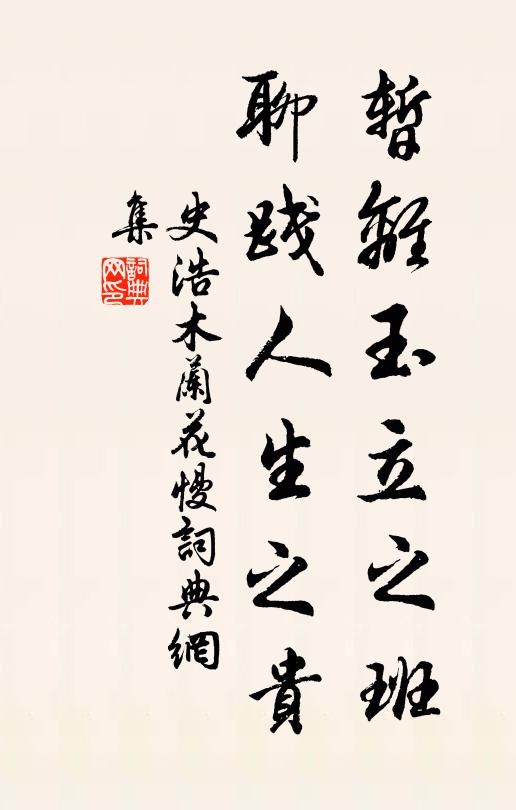 暫離玉立之班
聊踐人生之貴
史浩木蘭花慢詞典網
集
詞典網印